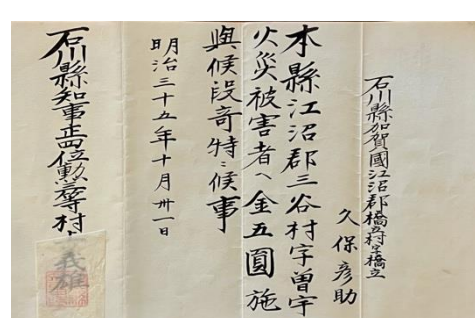 石川縣加賀國江沼郡橋立村字橋立
久保彦助
本縣江沼郡三谷村字曽宇
火災被害者へ金五圓施
與候段奇特ニ候事
明治三十五年十月卅一日
石川縣知事正四位勲三等村上義雄